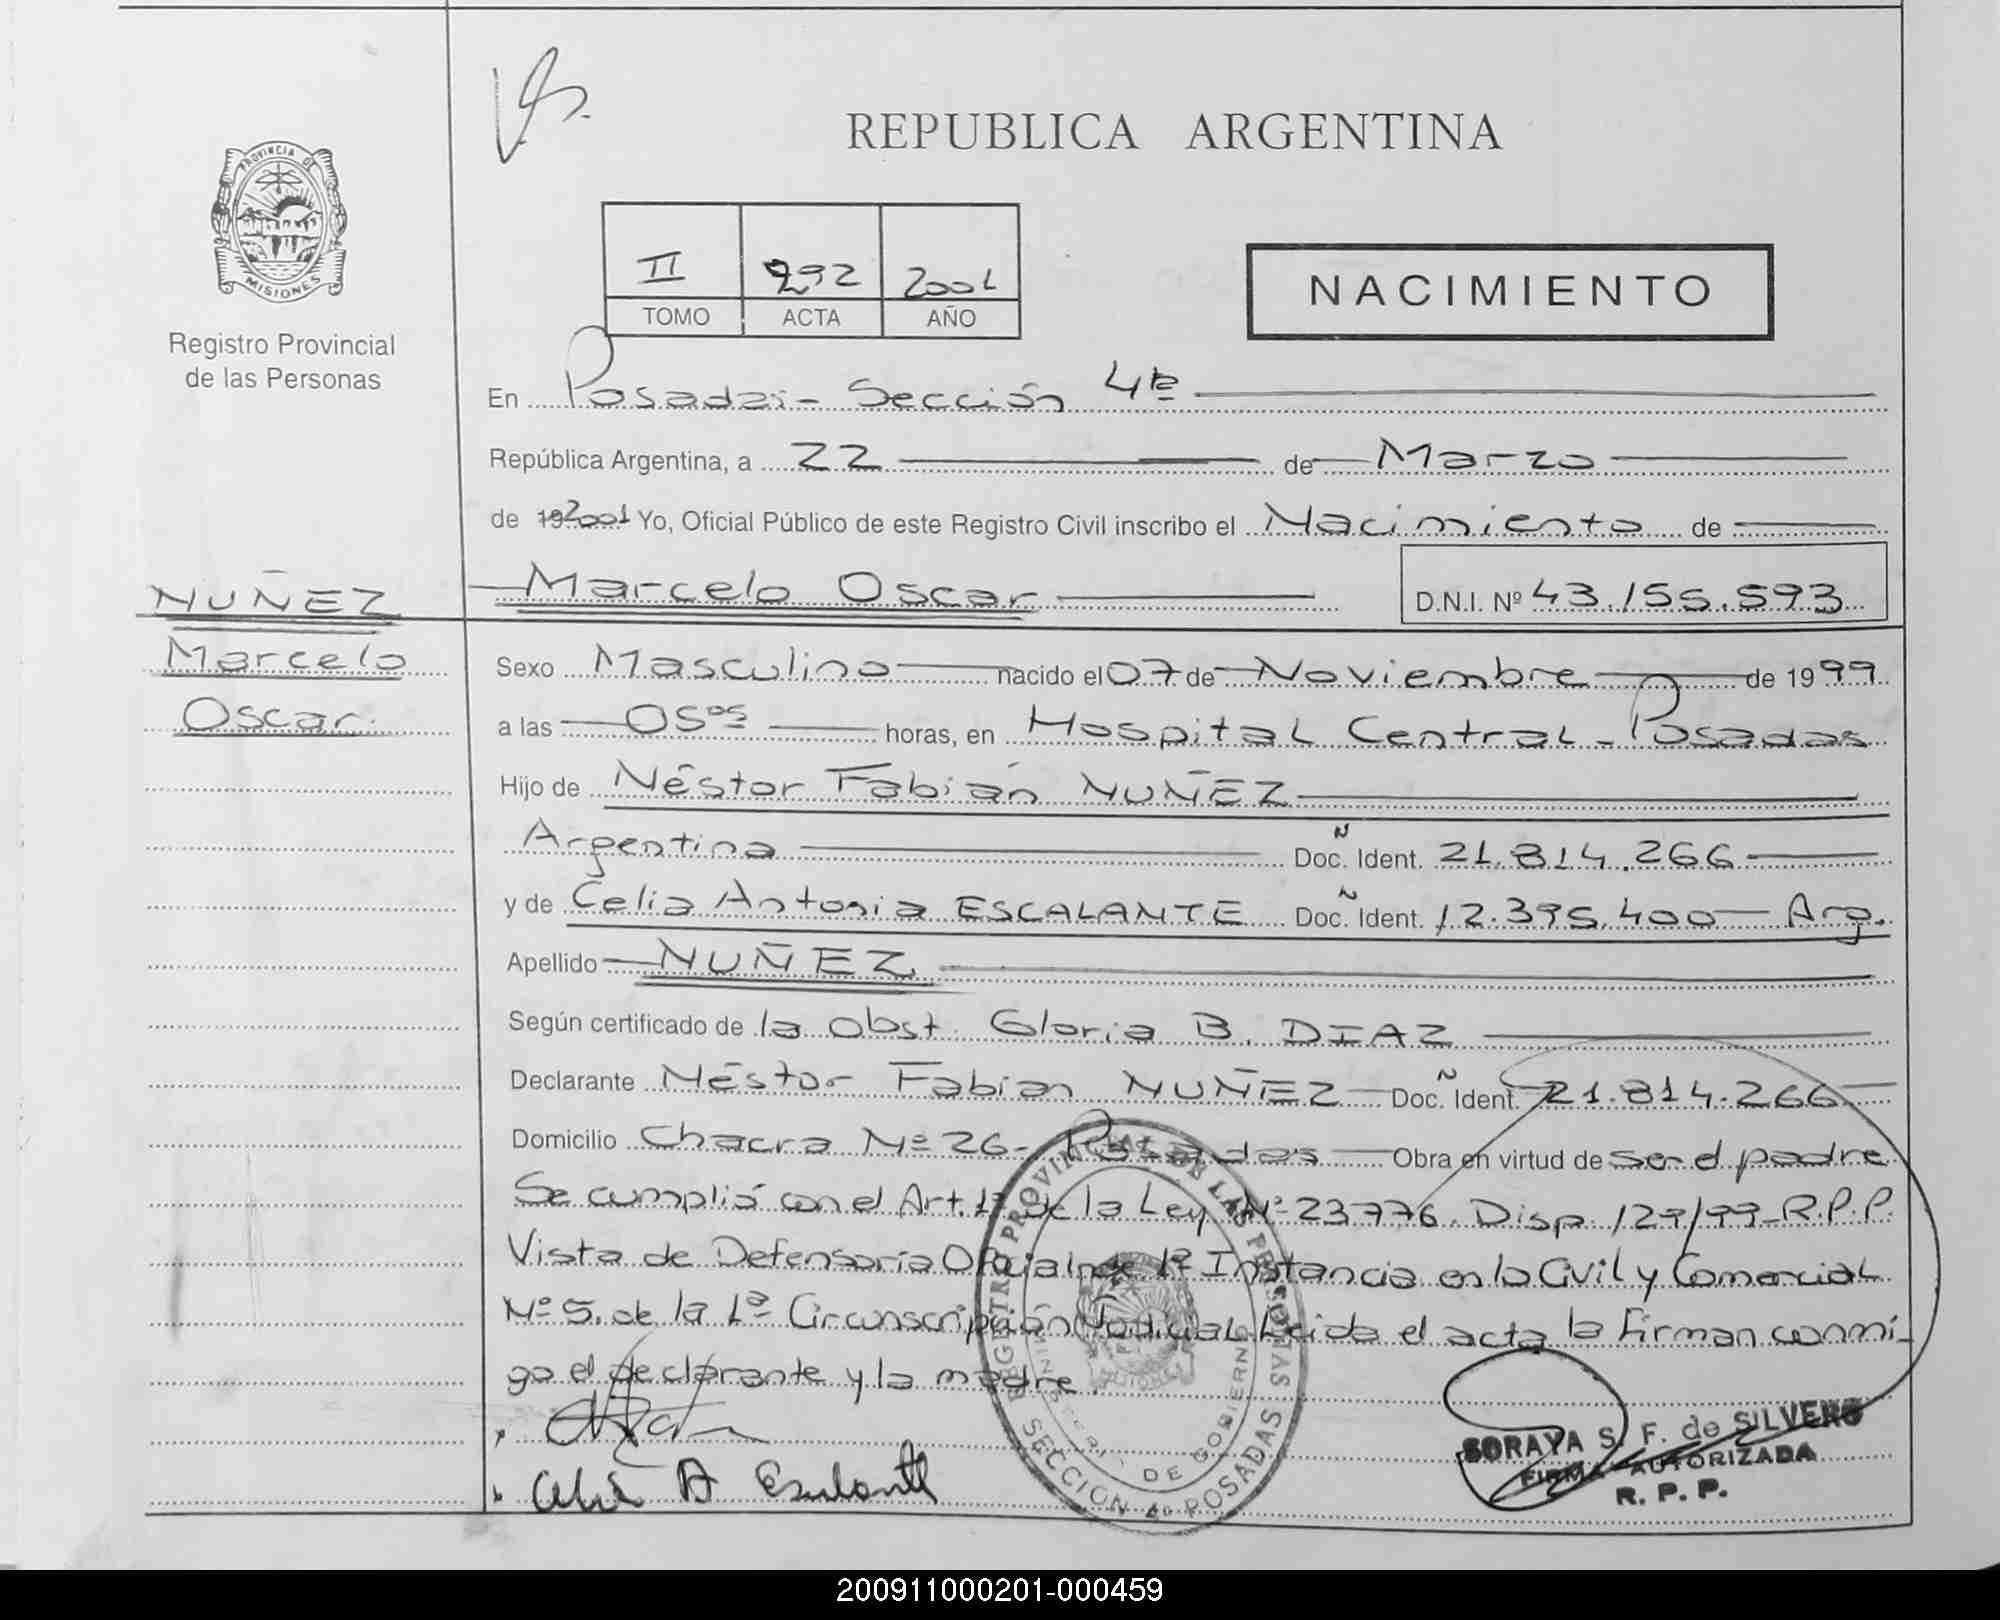 REPUBLICA ARGENTINA
PROVINCIA DE
MISIONES
Registro Provincial
de las Personas
II 292 2001
TOMO ACTA AÑO
NACIMIENTO
En Posadas - Sección 4ta
República Argentina, a 22 de Marzo
de 19 2001 Yo, Oficial Público de este Registro Civil inscribo el Nacimiento de
NUÑEZ
Marcelo
Oscar
Marcelo Oscar D.N.I. Nº 43.155.593
Sexo Masculino nacido el 07 de Noviembre de 1999
a las 05 05 horas, en Hospital Central - Posadas
Hijo de Néstor Fabián NUÑEZ
Argentina Doc. Ident. 21.814.266
y de Celia Antonia ESCALANTE Doc. Ident. 12.395.400 - Arg.
Apellido NUÑEZ
Según certificado de la obst. Gloria B. DIAZ
Declarante Néstor Fabian NUÑEZ Doc. Ident. 21.814.266
Domicilio Chacra Nº 26 - Posadas Obra en virtud de ser el padre
Se cumplió con el Art. 1º de la Ley Nº 23776. Disp. 129/99 - R.P.P.
Vista de Defensoría Oficial de 1ª Instancia en lo Civil y Comercial
Nº 5, de la 1ª Circunscripción Judicial. Leida el acta la firman conmi-
go el declarante y la madre.
Celia A Escalante
REGISTRO PROVINCIAL DE LAS PERSONAS
MINISTERIO DE GOBIERNO
SECCION 4a POSADAS
SORAYA S. F. de SILVERO
FIRMA AUTORIZADA
R. P. P.
200911000201-000459